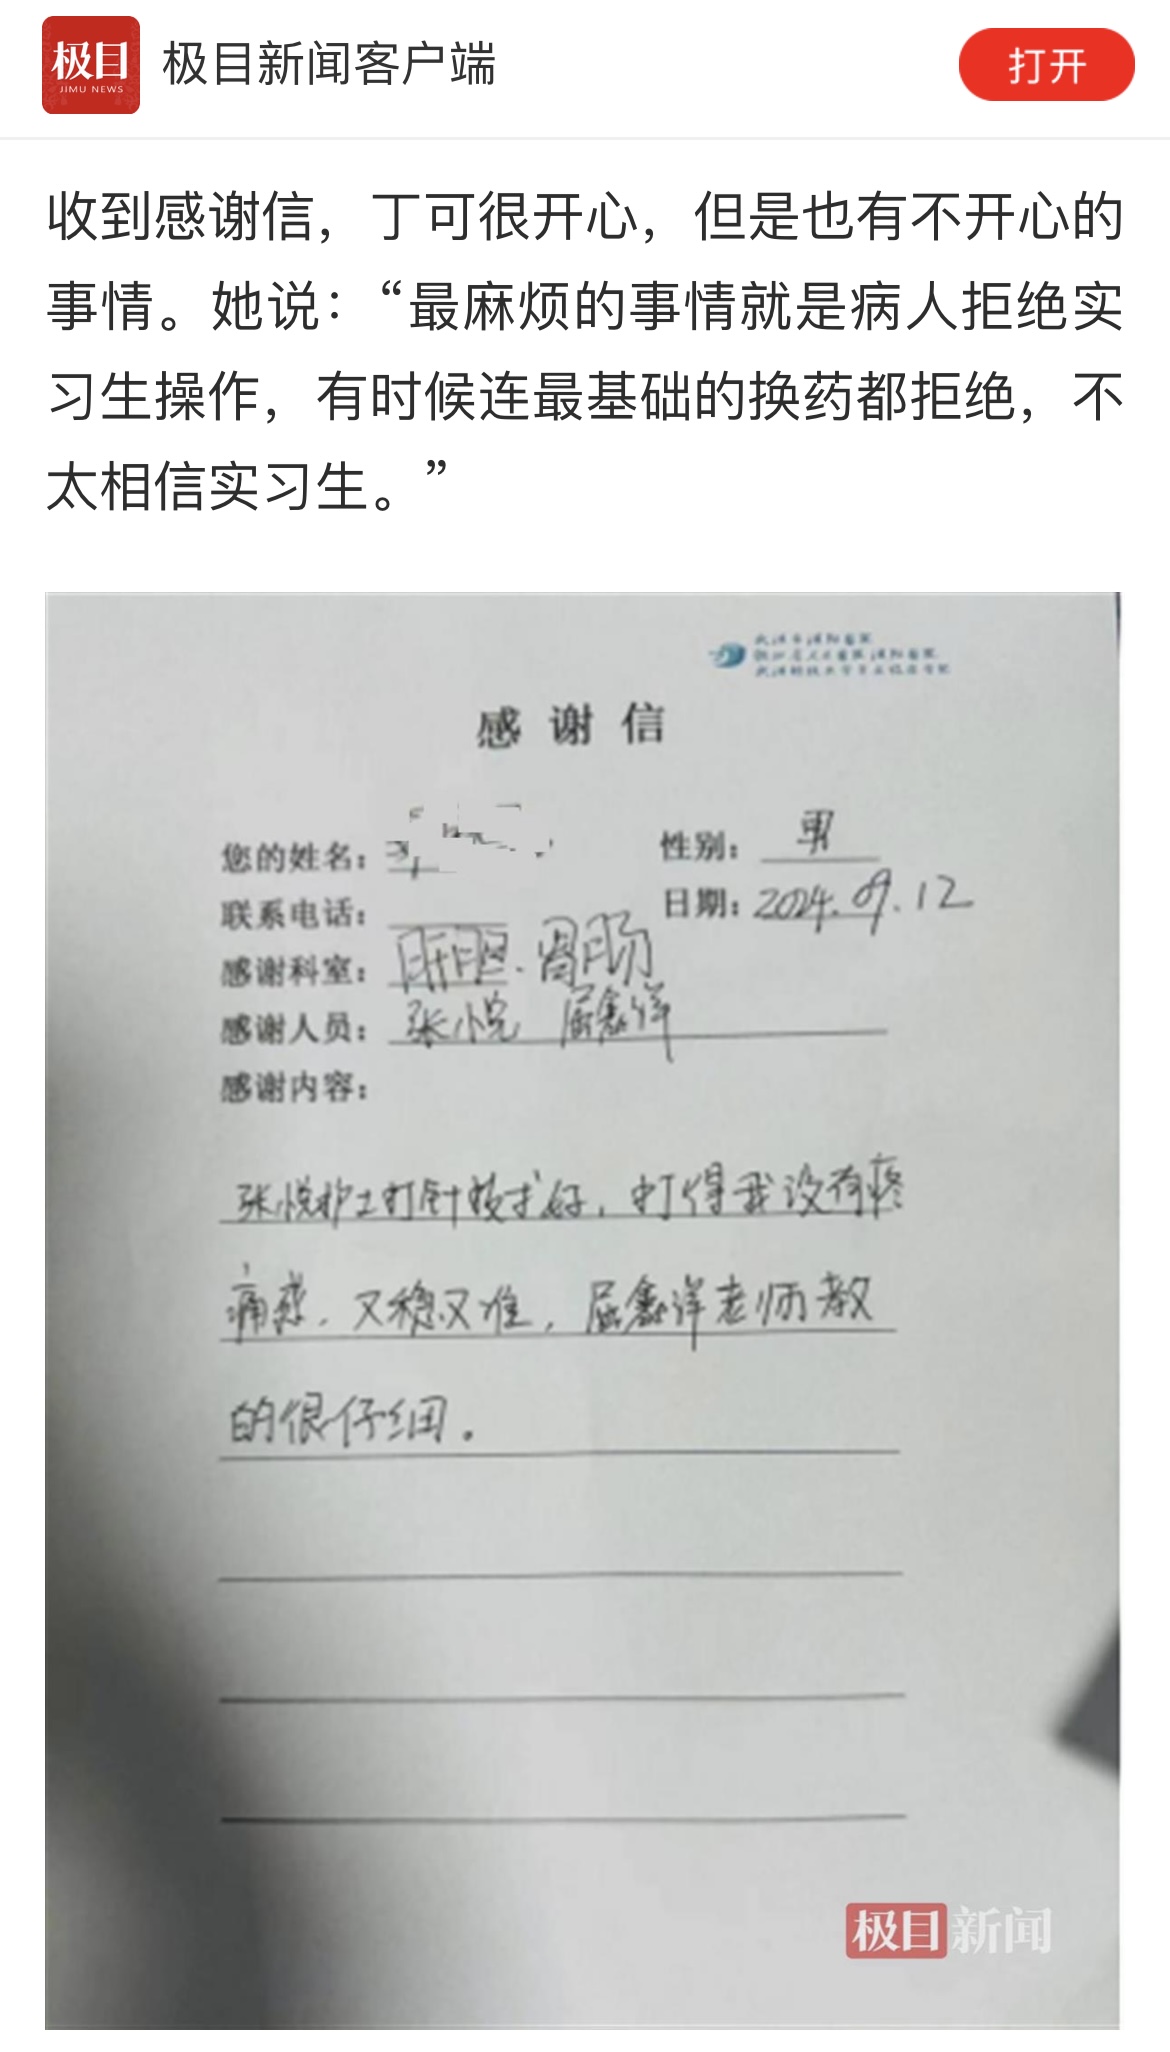 极目
JIMU NEWS
极目新闻客户端
打开
收到感谢信，丁可很开心，但是也有不开心的
事情。她说：“最麻烦的事情就是病人拒绝实
习生操作，有时候连最基础的换药都拒绝，不
太相信实习生。”
感谢信
您的姓名：
性别：男
联系电话：
日期：2024.09.12
感谢科室：肝胆.胃肠
感谢人员：张悦 屈鑫洋
感谢内容：
张悦护士打针技术好，打得我没有疼
痛感，又稳又准，屈鑫洋老师教
的很仔细。
极目新闻